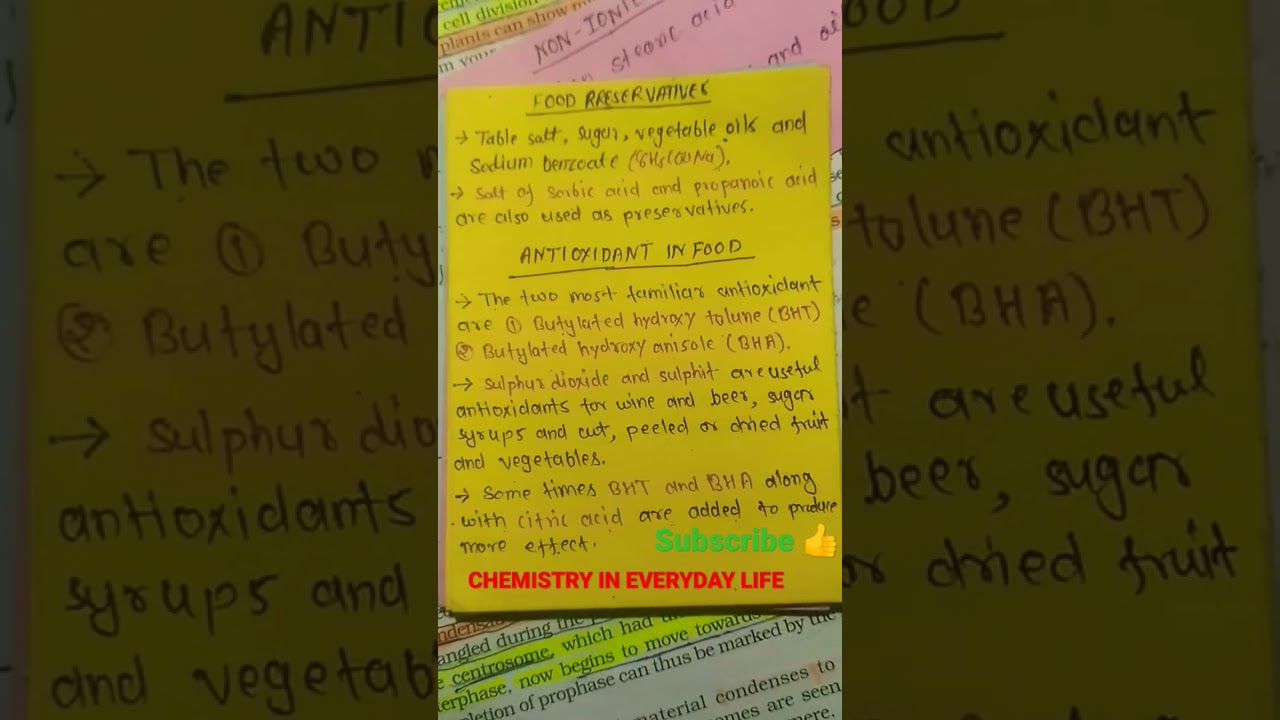 cell division
plants can show m
in your
NON-IONIC
stearic acid
and oi
FOOD RRESERVATIVES
→ Table salt, sugar, vegetable oils and
Sodium benzoate (C6H5COONa).
→ Salt of Sorbic acid and propanoic acid
are also used as preservatives.
ANTIOXIDANT IN FOOD
→ The two most familiar antioxidant
are ① Butylated hydroxy tolune (BHT)
② Butylated hydroxy anisole (BHA).
→ Sulphur dioxide and sulphit are useful
antioxidants for wine and beer, sugar
syrups and cut, peeled or dried fruit
and vegetables.
→ Some times BHT and BHA along
with citric acid are added to produce
more effect.
Subscribe 👍
CHEMISTRY IN EVERYDAY LIFE
angled during the
centrosome, which had
erphase, now begins to move towards
pletion of prophase can thus be marked by the
material condenses to
omes are seen
mere.
ANTIO
OOD
→ The two m
antioxidant
are ① Buty
tolune (BHT)
② Butylated
e (BHA).
→ Sulphur dio
it are useful
antioxidants
beer, sugar
syrups and
or dried fruit
and vegetab